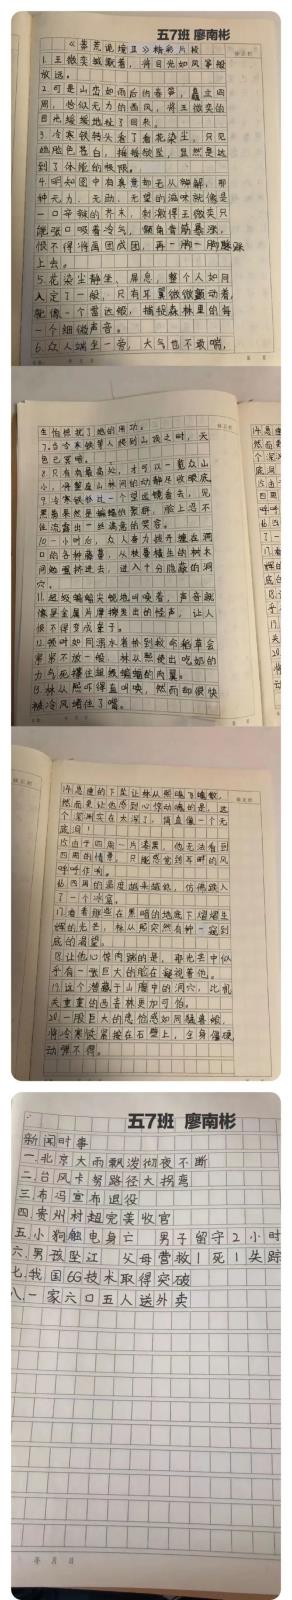 五7班 廖南彬
《莽荒诡境Ⅱ》精彩片段
1.王微奕缄默着，将目光如风筝般
放远。
2.可是山峦如雨后的春笋，矗立四
周，恰似无力的西风，将王微奕的
目光缓缓地拉了回来。
3.冷寒铁转头看了看花染尘，只见
她脸色苍白，摇摇欲坠，显然是达
到了体能的极限。
4.明知图中有真意却无从细解，那
种无力、无助、无望的滋味就像是
一口辛辣的芥末，刺激得王微奕只
能张口吸着冷气，额角青筋暴涨，
恨不得将画团成团，再一脚一脚
上去。
5.花染尘静坐、屏息，整个人如同
入定了一般，只有耳翼微微颤动着，
就像一个雷达般，捕捉森林里的每
一个细微声音。
6.众人端坐一旁，大气也不敢喘，
生怕惊扰了她的用功。
7.当冷寒铁等人摸到山顶之时，天
色已冥暗。
8.只有在最高处，才可以一览众山
小，将整座山林间的动静尽收眼底。
9.冷寒铁透过一个望远镜看去，见
黑点果然是蝙蝠的聚群，脸上忍不
住流露出一丝满意的笑容。
10.一小时后，众人奋力拨开缠在洞
口的各种藤蔓，从枝蔓横生的树木
间勉强挤进去，进入十分隐蔽的洞
穴。
11.超级蝙蝠尖锐地叫唤着，声音就
像是金属片摩擦发出的怪声，让人
恨不得变成聋子。
12.顿时如同溺水者抓到救命稻草会
紧紧不放一般，林从熙使出吃奶的
力气死攥住超级蝙蝠的肉翼。
13.林从熙吓得直叫唤，然而却很快
被冷风堵住了嘴。
14.急速的下坠让林从熙魂飞魄散，
然而更让他感到心惊动魄的是，这
个深渊实在太深了，简直像一个无
底洞！
15.由于四周一片漆黑，他无法看到
四周的情景，只能感觉到耳畔的风
呼呼作响。
16.四周的温度越来越低，仿佛跌入
了一个冰窟。
17.看着那些在黑暗的地底下熠熠生
辉的光芒，林从熙突然有种一窥到
底的渴望。
18.让他心惊肉跳的是，那光芒中似
乎有一张巨大的脸在凝视着他。
19.这个潜藏于山腹中的洞穴，比机
关重重的西香林更加可怕。
20.一股巨大的恐怖感如同猛兽般，
将冷寒铁紧按在石壁上，全身僵硬，
动弹不得。
五7班 廖南彬
新闻时事
一.北京大雨飘泼彻夜不断
二.台风卡努路径大拐弯
三.布冯宣布退役
四.贵州村超完美收官
五.小狗触电身亡 男子留守2小时
六.男孩坠江 父母营救1死1失踪
七.我国6G技术取得突破
八.一家六口五人送外卖
年 月 日